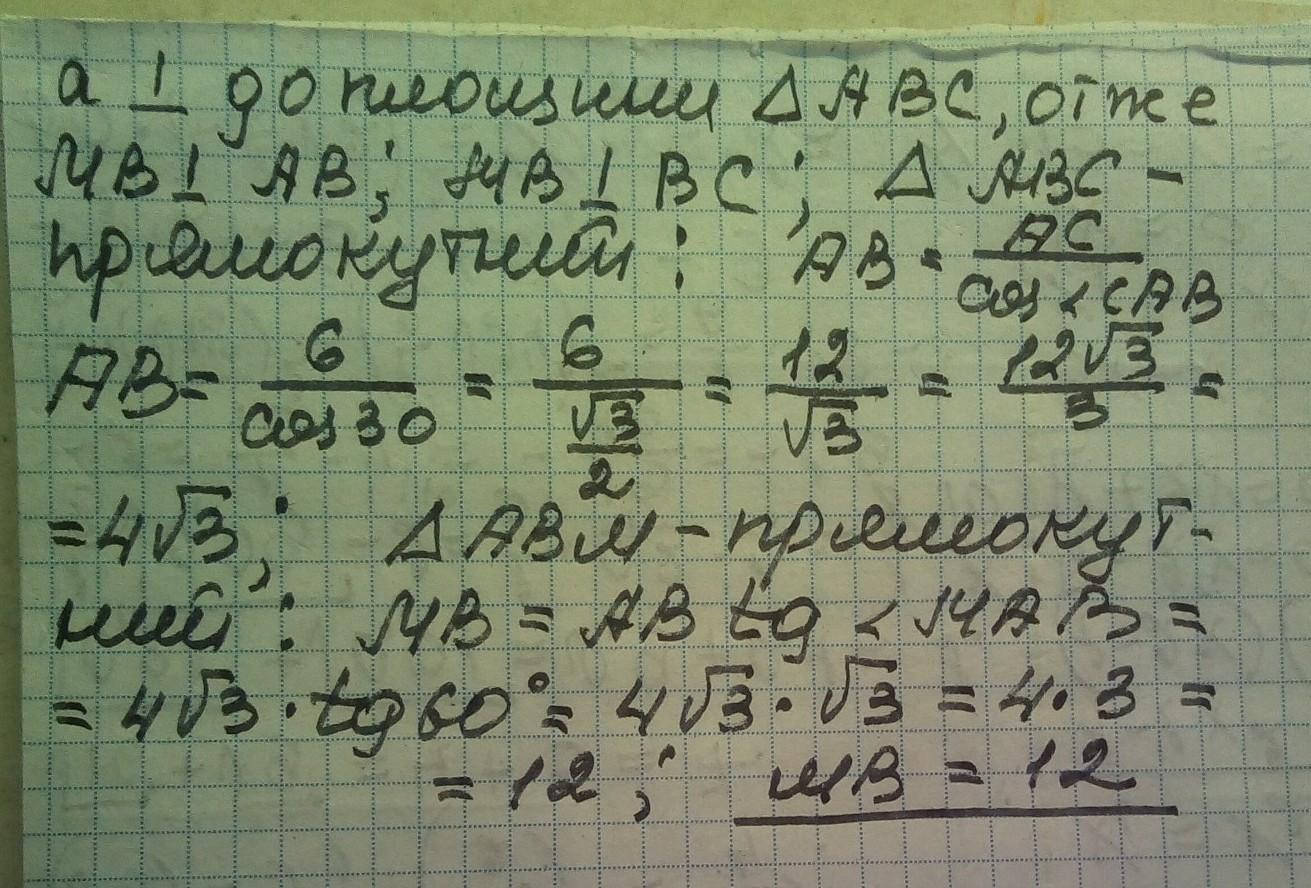 a ⊥ до площини ΔABC, отже
MB ⊥ AB; MB ⊥ BC; Δ ABC -
прямокутний: AB = AC / cos<CAB
AB = 6 / cos30 = 6 / (√3 / 2) = 12 / √3 = 12√3 / 3 =
= 4√3; ΔABM - прямокут-
ний: MB = AB tg < MAB =
= 4√3 · tg 60° = 4√3 · √3 = 4 · 3 =
= 12; MB = 12